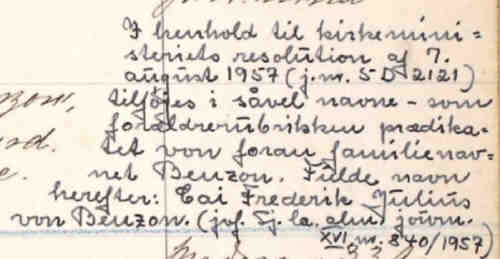 I henhold til kirkemini=
steriets resolution af 7.
august 1957 (j.nr. 5 D 2121)
tilføjes i såvel navne- som
forældrerubrikken prædika-
tet von foran familienav-
net Benzon. Fulde navn
herefter: Cai Frederik Julius
von Benzon. (jvf. Sj. la. alm. journ.
XVI, nr. 840/1957)